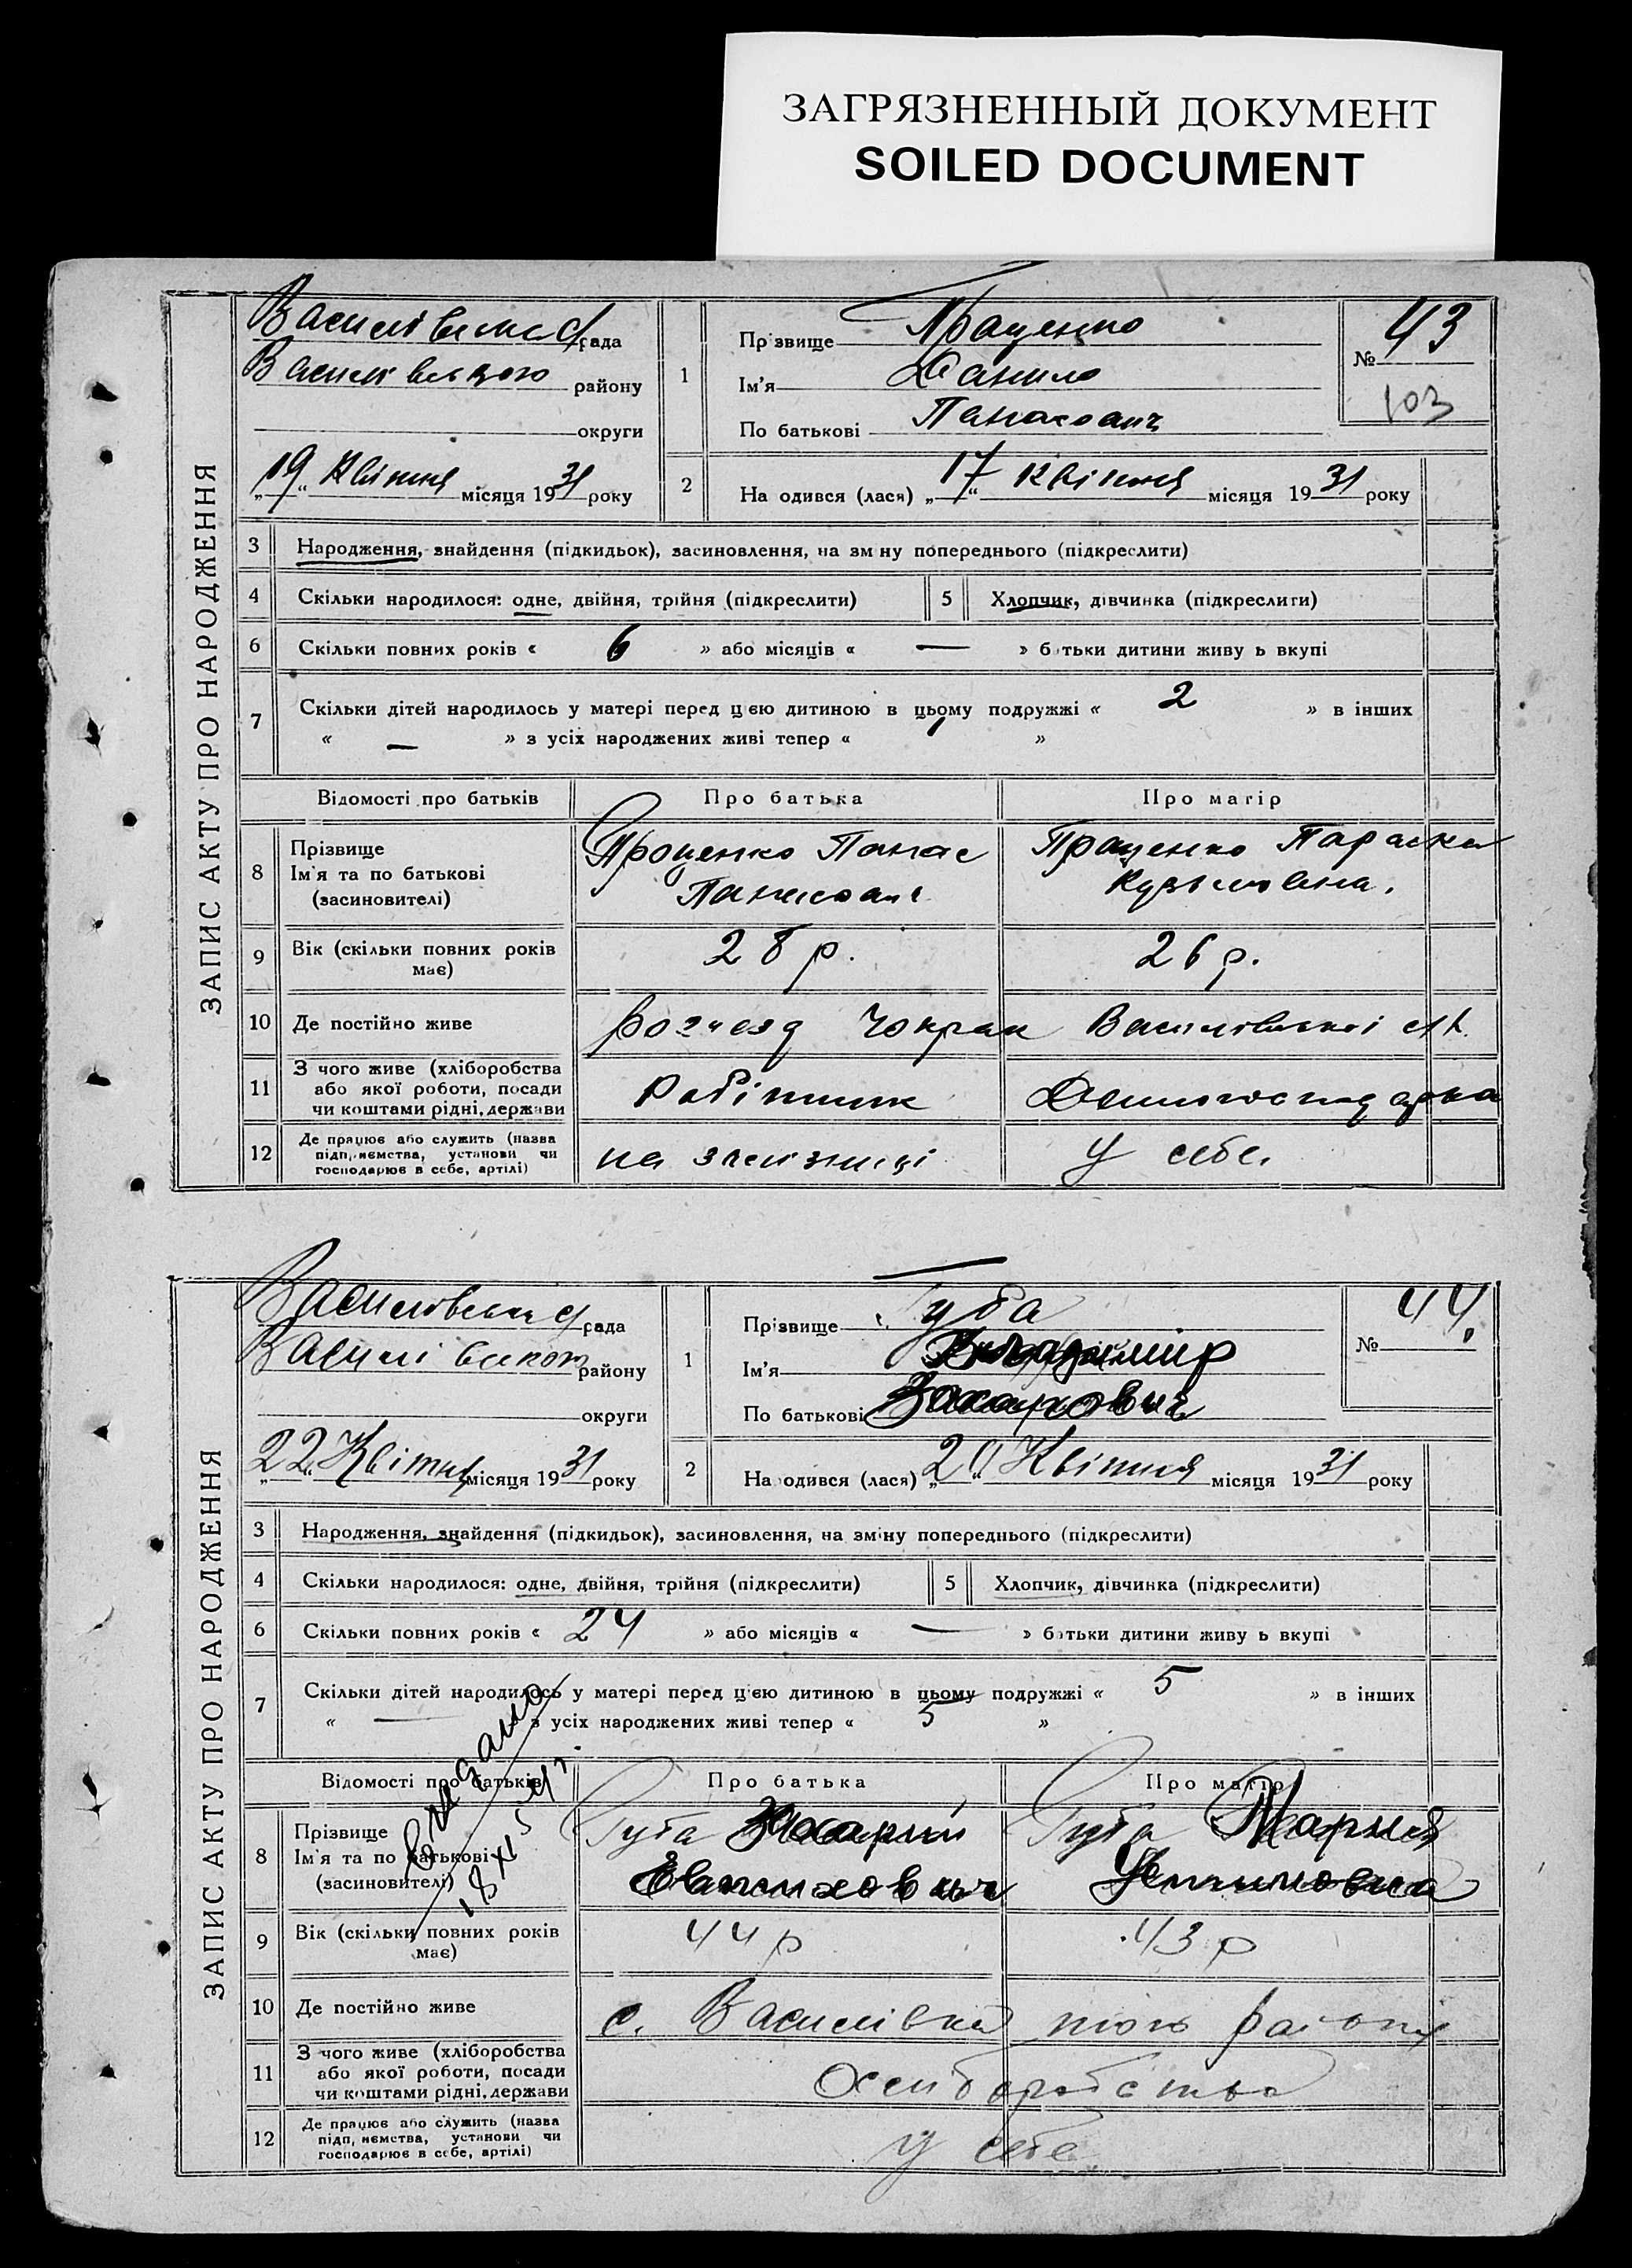 ЗАГРЯЗНЕННЫЙ ДОКУМЕНТ
SOILED DOCUMENT
ЗАПИС АКТУ ПРО НАРОДЖЕННЯ
Василівська рада
Василівського району
округи
„19“ Квітня місяця 1931 року
1
Прізвище Проценко
Ім'я Данило
По батькові Панасович
№ 43
103
2
На одився (лася) „17“ Квітня місяця 1931 року
3 Народження, знайдення (підкидьок), засиновлення, на зм ну попереднього (підкреслити)
4 Скільки народилося: одне, двійня, трійня (підкреслити)
5 Хлопчик, дівчинка (підкреслити)
6 Скільки повних років « 6 » або місяців « — » б тьки дитини живу ь вкупі
7 Скільки дітей народилось у матері перед цією дитиною в цьому подружжі « 2 » в інших
« — » з усіх народжених живі тепер « »
Відомості про батьків Про батька Про матір
8 Прізвище
Ім'я та по батькові
(засиновителі)
Проценко Панас
Панасович
Проценко Параска
Кузьмовна.
9 Вік (скільки повних років
має)
28 р. 26 р.
10 Де постійно живе
Розчезд Чокрак Василівської с/р.
11 З чого живе (хліборобства
або якої роботи, посади
чи коштами рідні, держави
Робітник Домогосподарка
12 Де працює або служить (назва
підп, иємства, установи чи
господарює в себе, артілі)
на залізниці у себе.
ЗАПИС АКТУ ПРО НАРОДЖЕННЯ
Василівська рада
Василівського району
округи
„22“ Квітня місяця 1931 року
1
Прізвище Губа
Ім'я Владимир
По батькові Захарович
№ 44
2
На одився (лася) „20“ Квітня місяця 1931 року
3 Народження, знайдення (підкидьок), засиновлення, на зміну попереднього (підкреслити)
4 Скільки народилося: одне, двійня, трійня (підкреслити)
5 Хлопчик, дівчинка (підкреслити)
6 Скільки повних років « 24 » або місяців « — » батьки дитини живу ь вкупі
7 Скільки дітей народилось у матері перед цією дитиною в цьому подружжі « 5 » в інших
« — » з усіх народжених живі тепер « 5 »
Відомості про батьків Про батька Про матір
8 Прізвище
Ім'я та по батькові
(засиновителі)
Губа Захарий
Губа Мария
9 Вік (скільки повних років
має)
44 р 43 р
10 Де постійно живе
с. Василівка того району
11 З чого живе (хліборобства
або якої роботи, посади
чи коштами рідні, держави
Хліборобство
12 Де працює або служить (назва
підп, иємства, установи чи
господарює в себе, артілі)
у себе